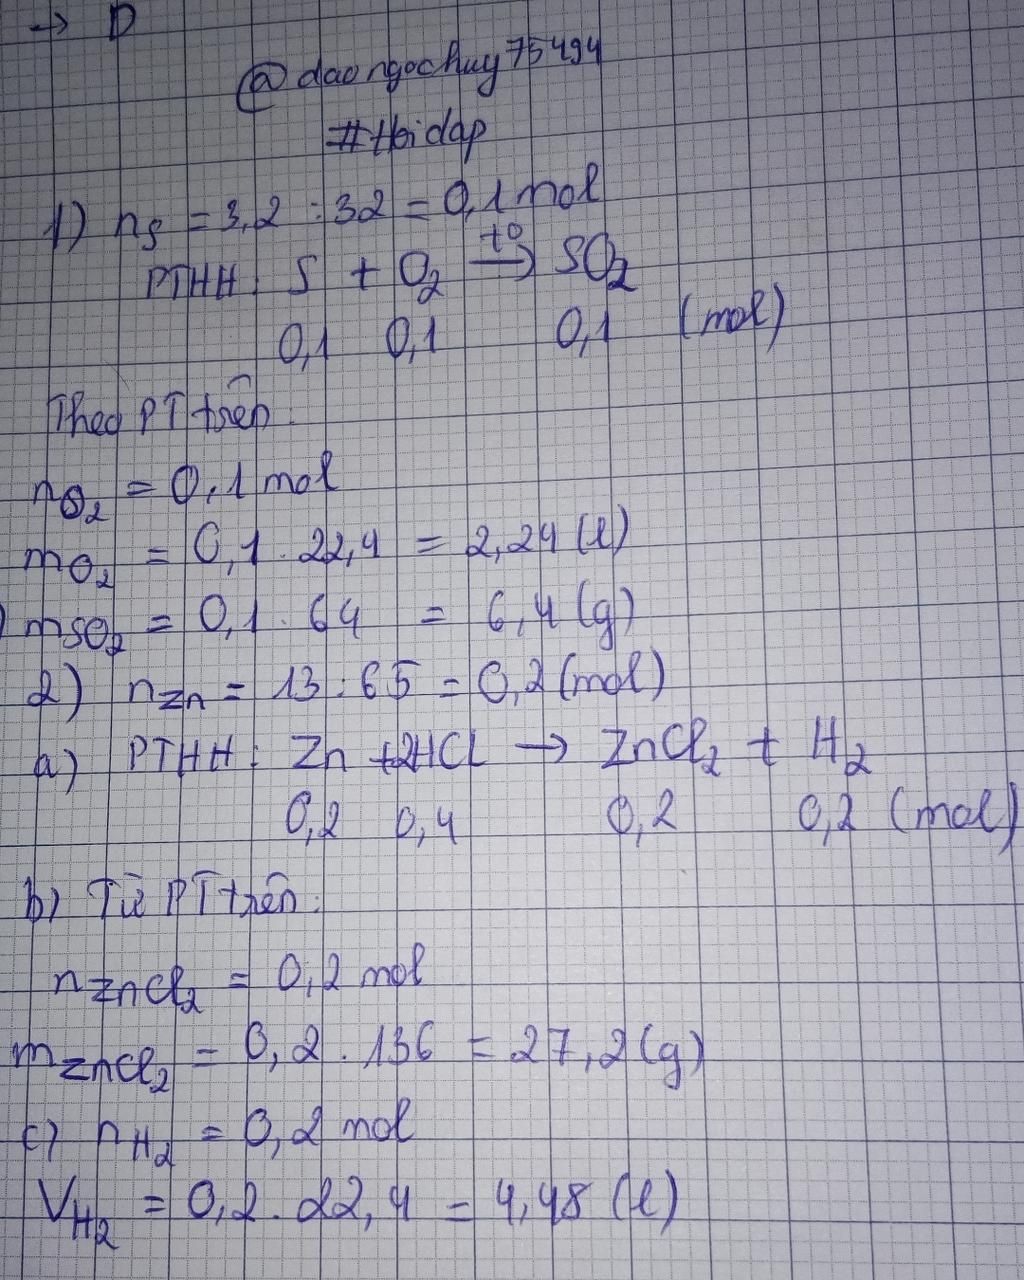 → D
@daongochuy75494
#tbidap
1) nS = 3,2 : 32 = 0,1 mol
PTHH: S + O2 t°→ SO2
0,1 0,1 0,1 (mol)
Theo PT trên:
nO2 = 0,1 mol
mO2 = 0,1 . 22,4 = 2,24 (l)
mSO2 = 0,1 . 64 = 6,4 (g)
2) nZn = 13 : 65 = 0,2 (mol)
a) PTHH: Zn + 2HCl → ZnCl2 + H2
0,2 0,4 0,2 0,2 (mol)
b) Từ PT trên:
nZnCl2 = 0,2 mol
mZnCl2 = 0,2 . 136 = 27,2 (g)
c) nH2 = 0,2 mol
VH2 = 0,2 . 22,4 = 4,48 (l)